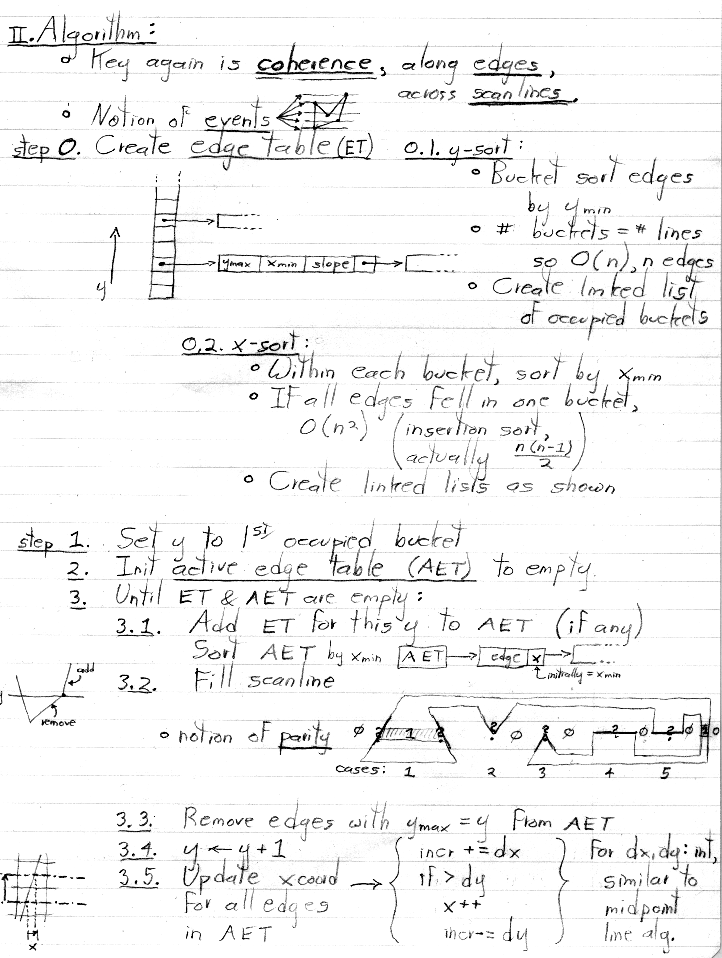 II. Algorithm:
o Key again is coherence, along edges,
across scan lines.
o Notion of events
step 0. Create edge table (ET) 0.1. y-sort:
o Bucket sort edges
by ymin
o # buckets = # lines
so O(n), n edges
o Create linked list
of occupied buckets
y
ymax xmin slope
0.2. x-sort:
o Within each bucket, sort by xmin
o If all edges fell in one bucket,
O(n²) (insertion sort,
actually n(n-1)/2)
o Create linked lists as shown
step 1. Set y to 1st occupied bucket
2. Init active edge table (AET) to empty.
3. Until ET & AET are empty:
3.1. Add ET for this y to AET (if any)
Sort AET by xmin AET edge x
initially = xmin
3.2. Fill scanline
add
remove
o notion of parity ∅ 2 1 2 2 ∅ 2 ∅ 2 ∅ 2 ∅ 1 0
cases: 1 2 3 4 5
3.3. Remove edges with ymax = y from AET
3.4. y ← y + 1
3.5. Update x coord
for all edges
in AET
incr += dx
if > dy
x++
incr -= dy
For dx, dy: int,
similar to
midpoint
line alg.
x